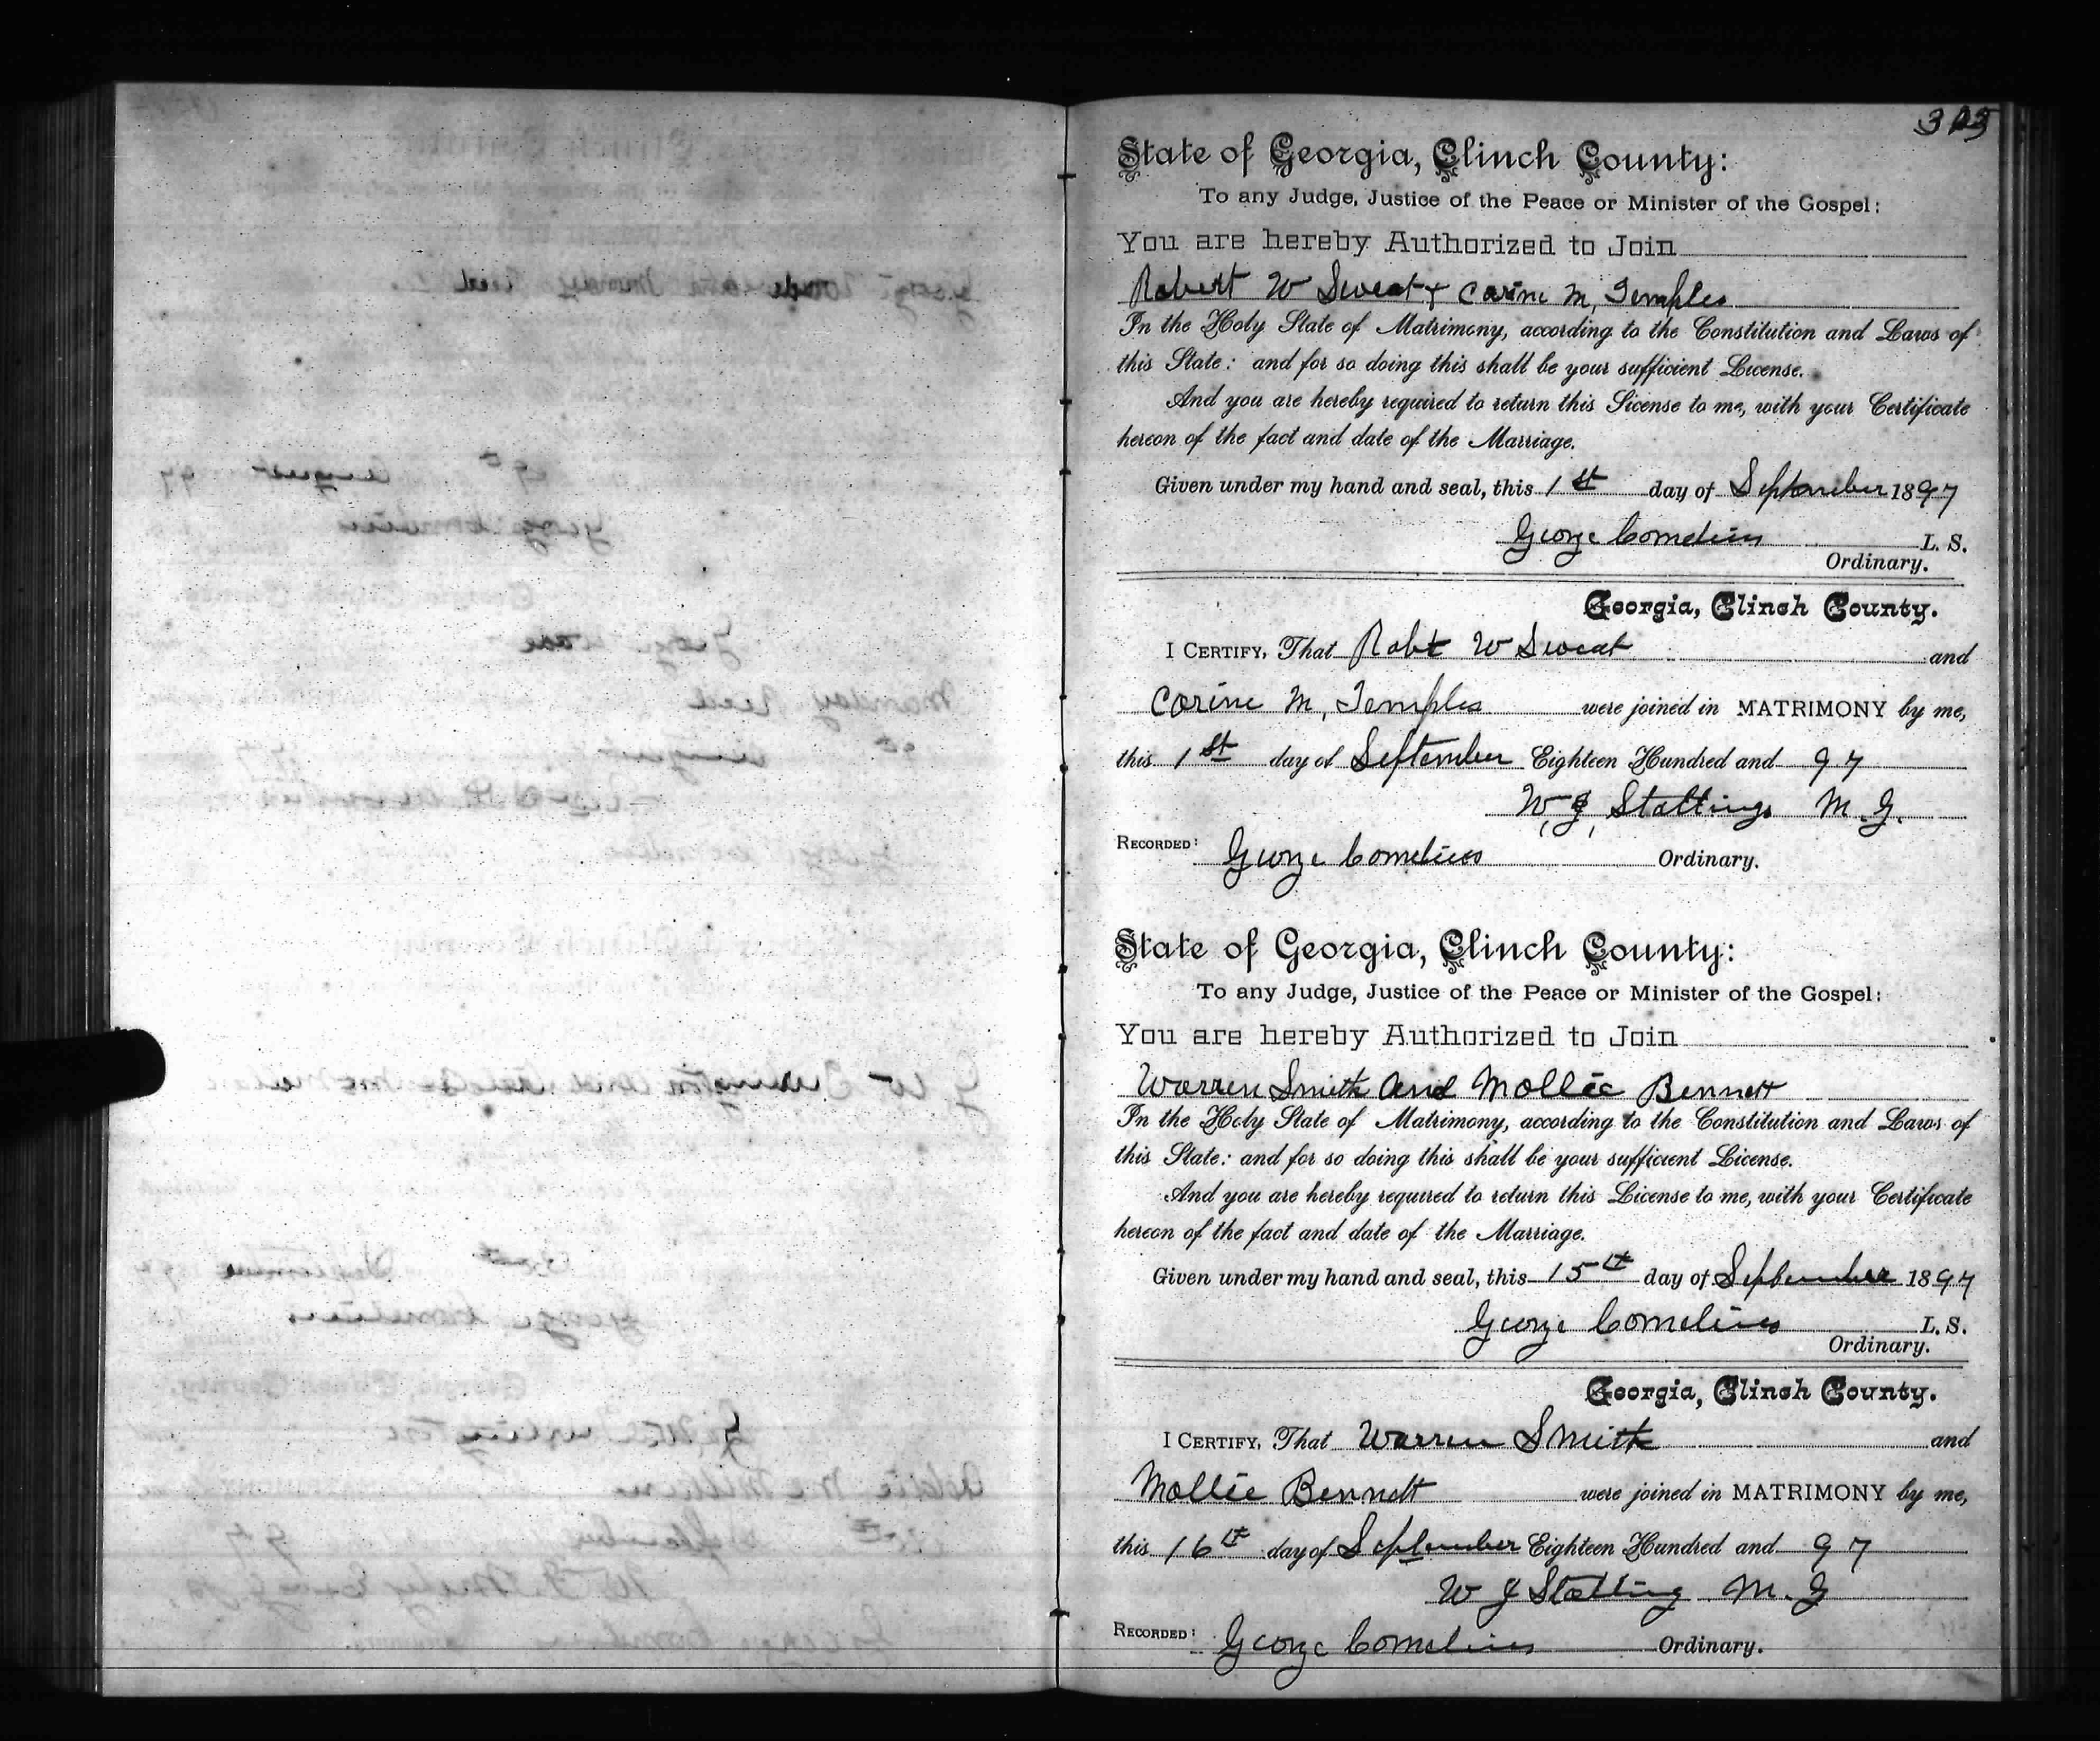 State of Georgia, Clinch County:
To any Judge, Justice of the Peace or Minister of the Gospel:
You are hereby Authorized to Join
Robert W Sweat & Carine M, Temples
In the Holy State of Matrimony, according to the Constitution and Laws of
this State: and for so doing this shall be your sufficient License.
And you are hereby required to return this License to me, with your Certificate
hereon of the fact and date of the Marriage.
Given under my hand and seal, this 1st day of September 1897
George Cornelius L. S.
Ordinary.
Georgia, Clinch County.
I CERTIFY, That Robt W Sweat and
Carine M, Temples were joined in MATRIMONY by me,
this 1st day of September Eighteen Hundred and 97
W, J, Stallings M. G.
RECORDED: George Cornelius Ordinary.
State of Georgia, Clinch County:
To any Judge, Justice of the Peace or Minister of the Gospel:
You are hereby Authorized to Join
Warren Smith and Mollie Bennett
In the Holy State of Matrimony, according to the Constitution and Laws of
this State: and for so doing this shall be your sufficient License.
And you are hereby required to return this License to me, with your Certificate
hereon of the fact and date of the Marriage.
Given under my hand and seal, this 15th day of September 1897
George Cornelius L. S.
Ordinary.
Georgia, Clinch County.
I CERTIFY, That Warren Smith and
Mollie Bennett were joined in MATRIMONY by me,
this 16th day of September Eighteen Hundred and 97
W J Stalling M. G
RECORDED: George Cornelius Ordinary.